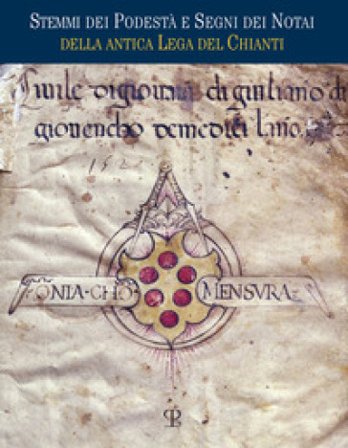 STEMMI DEI PODESTÀ E SEGNI DEI NOTAI
DELLA ANTICA LEGA DEL CHIANTI
Civile di giovanni di giuliano di
giovencho de medici l'anno
152
OGNIA·CHO MENSURA